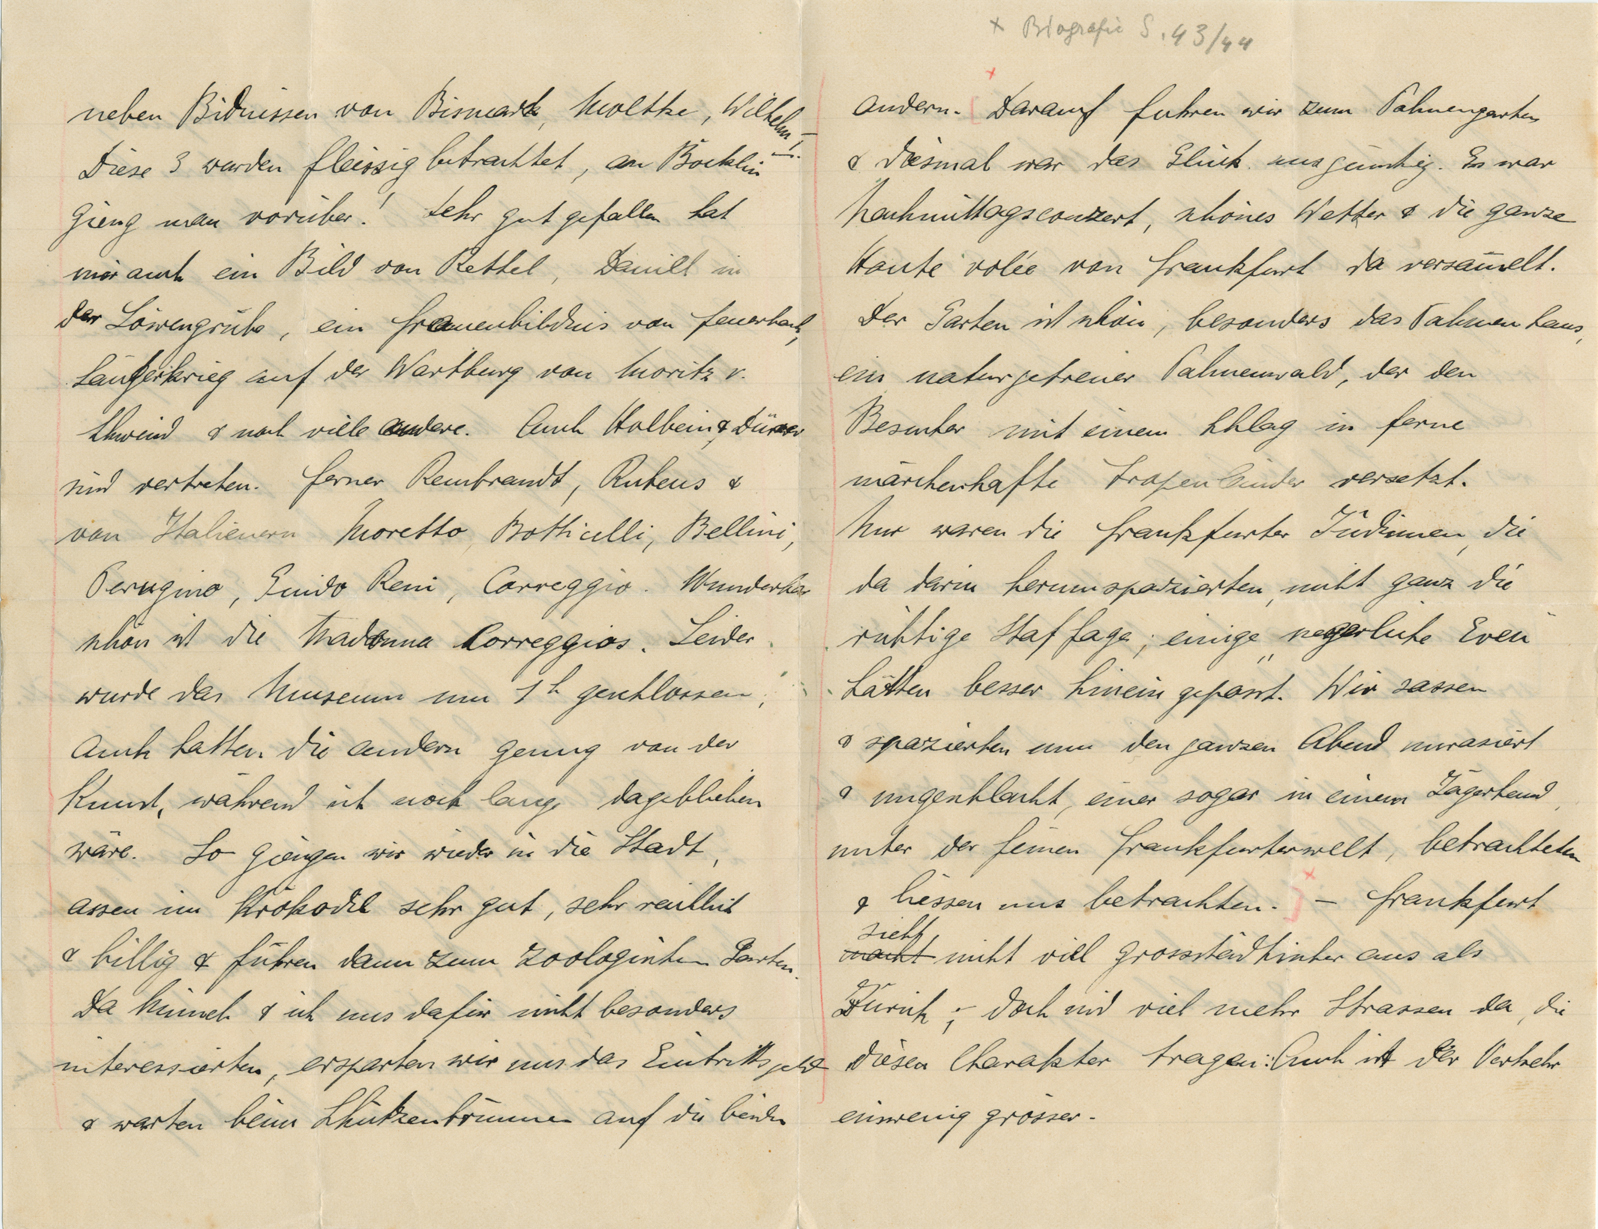 neben Bidnissen von Bismark, Moltke, Wilhelm I.
Diese 3 wurden fleissig betrachtet, an Böcklin
gieng man vorüber! Sehr gut gefallen hat
mir auch ein Bild von Rettel, Daniel in
der Löwengrube, ein Frauenbildnis von Feuerbach,
Sängerkrieg auf der Wartburg von Moritz v.
Schwind & noch viele andere. Auch Holbein & Dürer
sind vertreten. Ferner Rembrandt, Rubens &
von Italienern Moretto, Botticelli, Bellini,
Perugino, Guido Reni, Correggio. Wunderbar
schön ist die Madonna Correggios. Leider
wurde das Museum um 1 h geschlossen;
Auch hatten die andern genug von der
Kunst, während ich noch lange dageblieben
wäre. So giengen wir wieder in die Stadt,
assen im Krokodil sehr gut, sehr reichlich
& billig & führen dann zum Zoologischen Garten.
Da Minneh & ich uns dafür nicht besonders
interessierten, ersparten wir uns das Eintrittsgeld
& warten beim Schützenbrunnen auf die beiden
x Biografie S. 43/44
andern. Darauf fuhren wir zum Palmengarten
& diesmal war das Glück uns günstig. Es war
Nachmittagsconzert, schönes Wetter & die ganze
Haute volée von Frankfurt da versam̅elt.
Der Garten ist schön, besonders das Palmenhaus,
ein naturgetreuer Palmenwald, der den
Besucher mit einem Schlag in ferne
märchenhafte Tropenländer versetzt.
Nur waren die Frankfurter Jüdinnen, die
da darin herumspazierten, nicht ganz die
richtige Staffage; einige negerliche Even
hätten besser hinein gepasst. Wir sassen
& spazierten nun den ganzen Abend unrasiert
& ungeschlacht, einer sogar in einem Jägerhemd,
unter der feinen Frankfurterwelt, betrachteten
& liessen uns betrachten. – Frankfurt
sieht
macht nicht viel grossstädtischer aus als
Zürich; doch sind viel mehr Strassen da, die
diesen Charakter tragen: Auch ist der Verkehr
einwenig grösser.